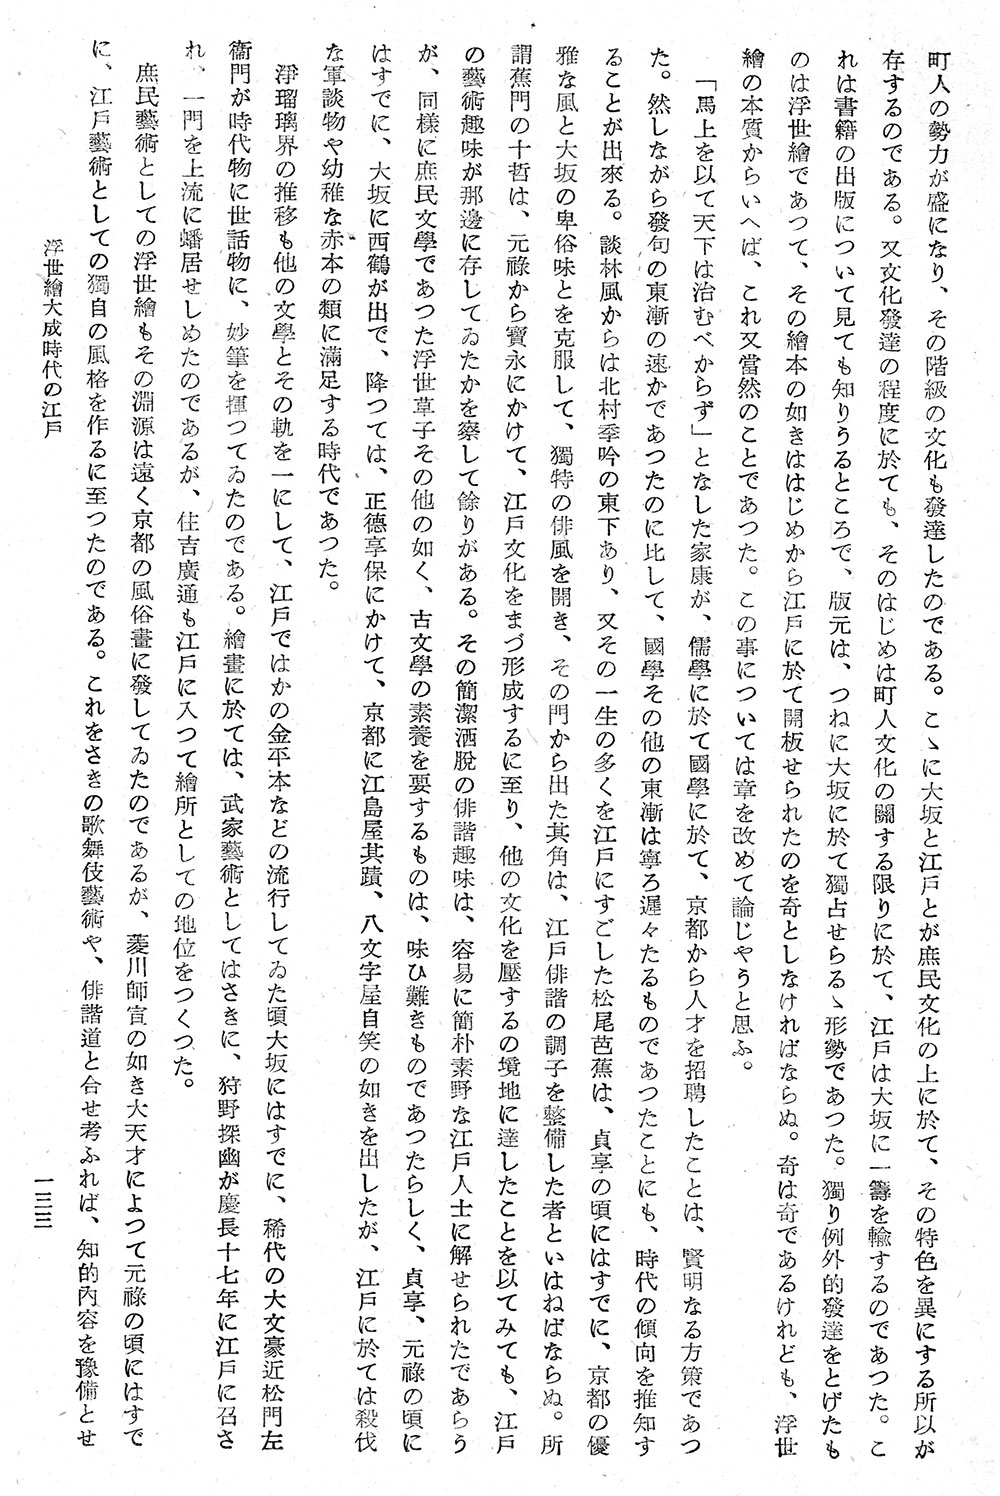 町人の勢力が盛になり、その階級の文化も發達したのである。こゝに大坂と江戸とが庶民文化の上に於て、その特色を異にする所以が
存するのである。又文化發達の程度に於ても、そのはじめは町人文化の關する限りに於て、江戸は大坂に一籌を輸するのであつた。こ
れは書籍の出版について見ても知りうるところで、版元は、つねに大坂に於て獨占せらるゝ形勢であつた。獨り例外的發達をとげたも
のは浮世繪であつて、その繪本の如きははじめから江戸に於て開板せられたのを奇としなければならぬ。奇は奇であるけれども、浮世
繪の本質からいへば、これ又當然のことであつた。この事については章を改めて論じやうと思ふ。
「馬上を以て天下は治むべからず」となした家康が、儒學に於て國學に於て、京都から人才を招聘したことは、賢明なる方策であつ
た。然しながら發句の東漸の速かであつたのに比して、國學その他の東漸は寧ろ遲々たるものであつたことにも、時代の傾向を推知す
ることが出來る。談林風からは北村季吟の東下あり、又その一生の多くを江戸にすごした松尾芭蕉は、貞享の頃にはすでに、京都の優
雅な風と大坂の卑俗味とを克服して、獨特の俳風を開き、その門から出た其角は、江戸俳諧の調子を整備した者といはねばならぬ。所
謂蕉門の十哲は、元祿から寶永にかけて、江戸文化をまづ形成するに至り、他の文化を壓するの境地に達したことを以てみても、江戸
の藝術趣味が那邊に存してゐたかを察して餘りがある。その簡潔洒脫の俳諧趣味は、容易に簡朴素野な江戸人士に解せられたであらう
が、同樣に庶民文學であつた浮世草子その他の如く、古文學の素養を要するものは、味ひ難きものであつたらしく、貞享、元祿の頃に
はすでに、大坂に西鶴が出で、降つては、正德享保にかけて、京都に江島屋其蹟、八文字屋自笑の如きを出したが、江戸に於ては殺伐
な軍談物や幼稚な赤本の類に滿足する時代であつた。
淨瑠璃界の推移も他の文學とその軌を一にして、江戸ではかの金平本などの流行してゐた頃大坂にはすでに、稀代の大文豪近松門左
衞門が時代物に世話物に、妙筆を揮つてゐたのである。繪畫に於ては、武家藝術としてはさきに、狩野探幽が慶長十七年に江戸に召さ
れ、一門を上流に蟠居せしめたのであるが、住吉廣通も江戸に入つて繪所としての地位をつくつた。
庶民藝術としての浮世繪もその淵源は遠く京都の風俗畫に發してゐたのであるが、菱川師宣の如き大天才によつて元祿の頃にはすで
に、江戸藝術としての獨自の風格を作るに至つたのである。これをさきの歌舞伎藝術や、俳諧道と合せ考ふれば、知的內容を豫備とせ
浮世繪大成時代の江戸
一三三